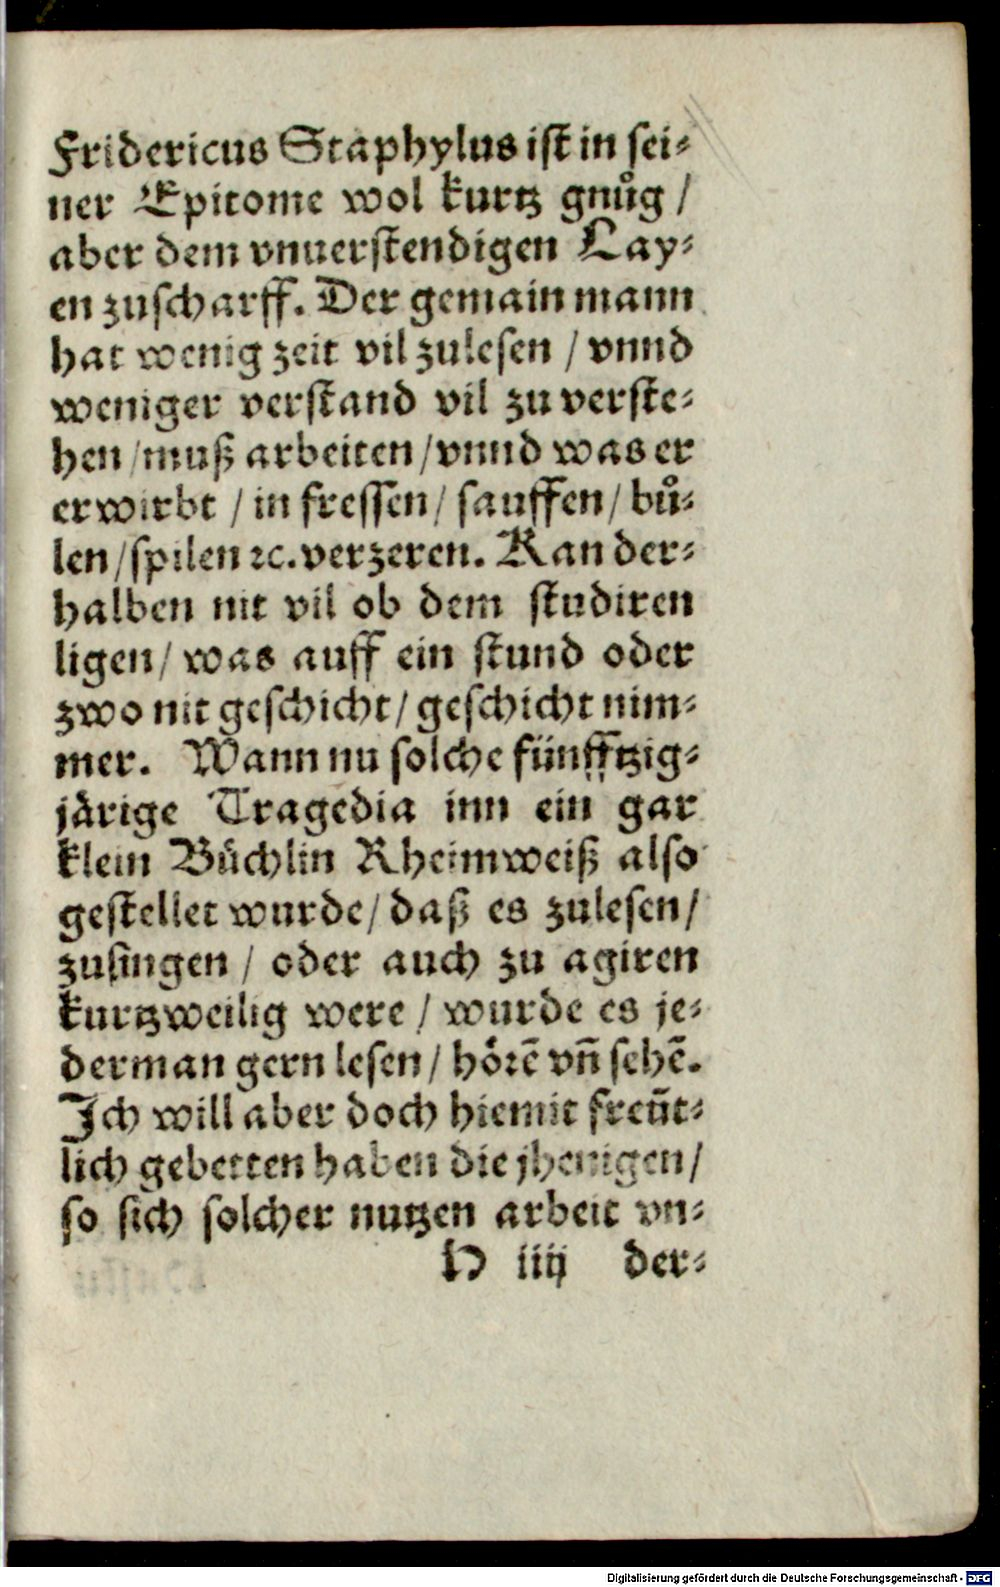 Fridericus Staphylus ist in sei⸗
ner Epitome wol kurtz gnůg /
aber dem vnuerstendigen Lay⸗
en zuscharff. Der gemain mann
hat wenig zeit vil zulesen / vnnd
weniger verstand vil zu verste⸗
hen / muß arbeiten / vnnd was er
erwirbt / in fressen / sauffen / bů⸗
len / spilen ꝛc. verzeren. Kan der⸗
halben nit vil ob dem studiren
ligen / was auff ein stund oder
zwo nit geschicht / geschicht nim⸗
mer. Wann nu solche fünfftzig⸗
järige Tragedia inn ein gar
klein Büchlin Rheimweiß also
gestellet wurde / daß es zulesen /
zusingen / oder auch zu agiren
kurtzweilig were / wurde es je⸗
derman gern lesen / hörē vñ sehē.
Ich will aber doch hiemit freüt⸗
lich gebetten haben die jhenigen /
so sich solcher nutzen arbeit vn⸗
H iiij der⸗
Digitalisierung gefördert durch die Deutsche Forschungsgemeinschaft - DFG